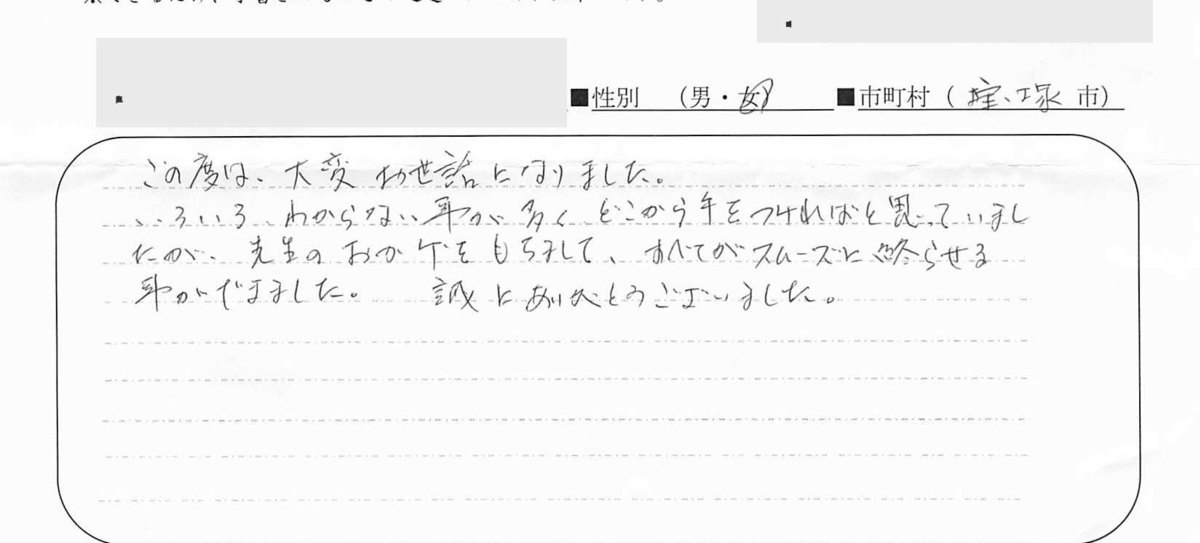 ■性別 （男・女） ■市町村（ 宝塚 市）
この度は、大変お世話になりました。
いろいろ、わからない事が多く、どこから手をつければと思っていまし
たが、先生のおかげをもちまして、すべてがスムーズに終らせる
事ができました。 誠にありがとうございました。